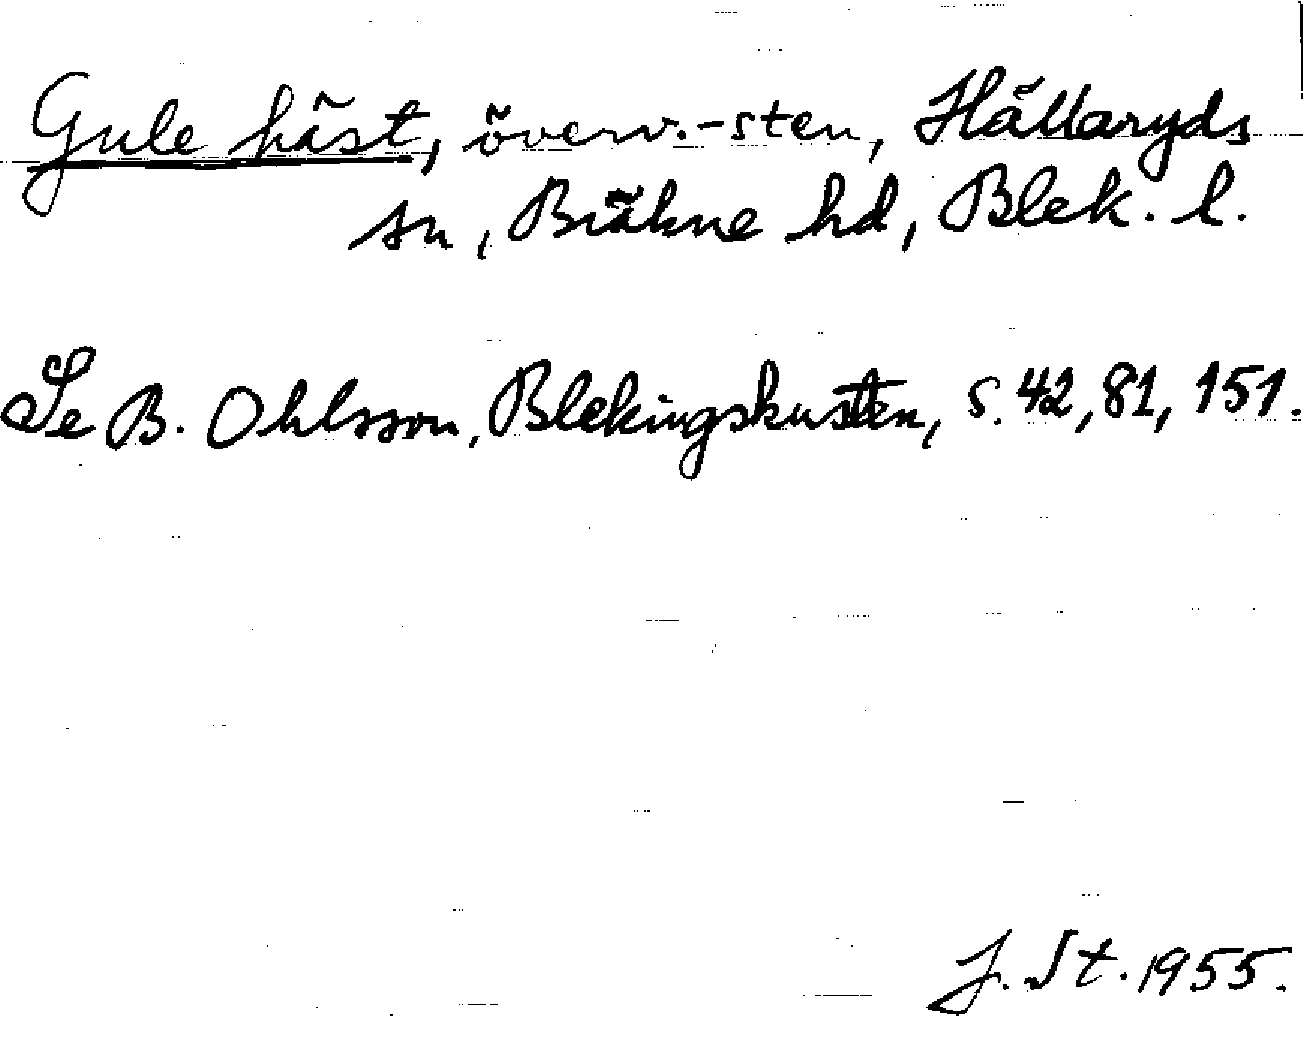 Gule häst, överv.-sten, Hällaryds
sn, Bräkne hd, Blek. l.
Se B. Ohlsson, Blekingskusten, s. 42, 81, 151.
J. St. 1955.